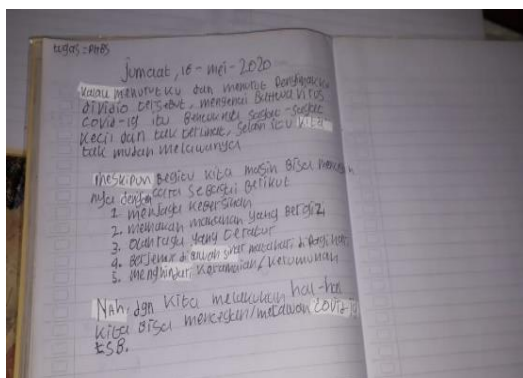 tugas = PABS
Jumaat, 16 - mei - 2020
Kalau menurutku dan menurut
divideo tersebut, mengenai Bahwa Virus
Covid-19 itu Bentuknya sangat-sangat
kecil dan tak terlihat, selain itu kita
tak mudah melawannya
meskipun Begitu kita masih Bisa mencegah
nya dengan cara sebagai Berikut
1. menjaga kebersihan
2. memakan makanan yang Bergizi
3. Olahraga yang teratur
4. Berjemur di bawah sinar matahari, di pagi hari
5. menghindari Keramaian/Kerumunan
Nah, dgn kita melakukan hal-hal
kita Bisa mencegah/melawan COVID-19
tSB.